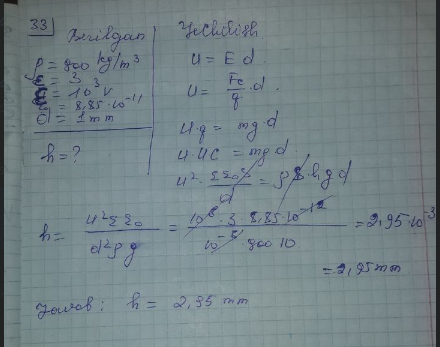 33 Berilgan
ρ = 900 kg/m³
ε = 3
U = 10³ V
ε₀ = 8,85·10⁻¹²
d = 1 mm
h = ?
Yechilishi
U = E d
U = Fe/q · d
U·q = mg·d
U·UC = mg·d
U²· εε₀S/d = ρ S·h g d
h = U²εε₀/d²ρg = 10⁶·3·8,85·10⁻¹²/10⁻⁶·900·10 = 2,95·10⁻³
= 2,95 mm
Javob: h = 2,95 mm